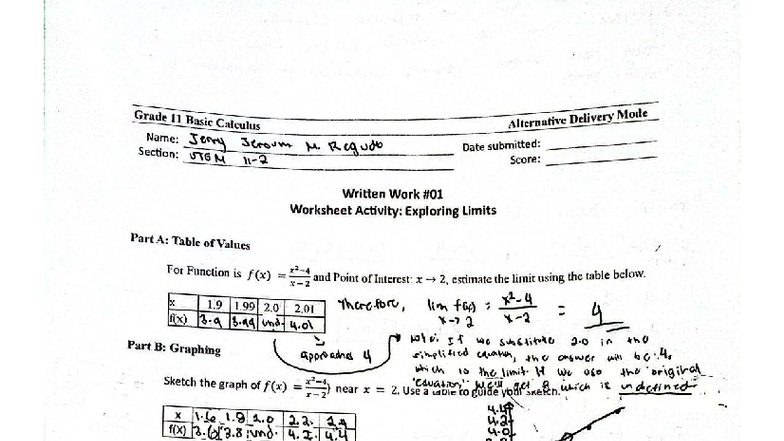 Grade 11 Basic Calculus
Alternative Delivery Mode
Name: Jerry Jeroum M. Regudo
Date submitted:
Section: 11-2
Score:
Written Work #01
Worksheet Activity: Exploring Limits
Part A: Table of Values
For Function is f(x) = x²-4/x-2 and Point of Interest: x → 2, estimate the limit using the table below.
x 1.9 1.99 2.0 2.01
f(x) 3.9 3.99 und. 4.01
Therefore, lim f(x) = x²-4/x-2 = 4
x→2
approaches 4
Note: If we substitute 2.0 in the
simplified equation, the answer will be 4,
which is the limit. If we use the "original
equation," we'll get 0 which is undefined
Part B: Graphing
Sketch the graph of f(x) = x²-4/x-2) near x = 2. Use a table to guide your sketch.
x 1.6 1.8 2.0 2.2 2.4
f(x) 3.6 3.8 und. 4.2 4.4
4.4
4.2
4.0